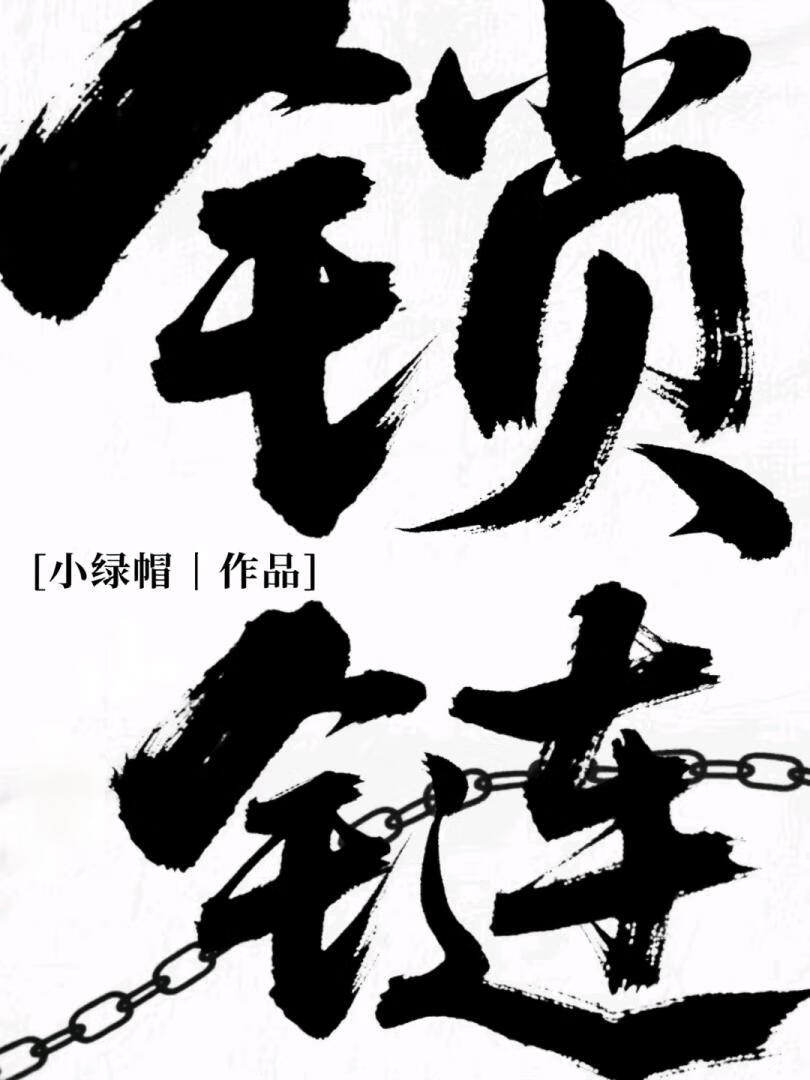 锁
[小绿帽｜作品]
链